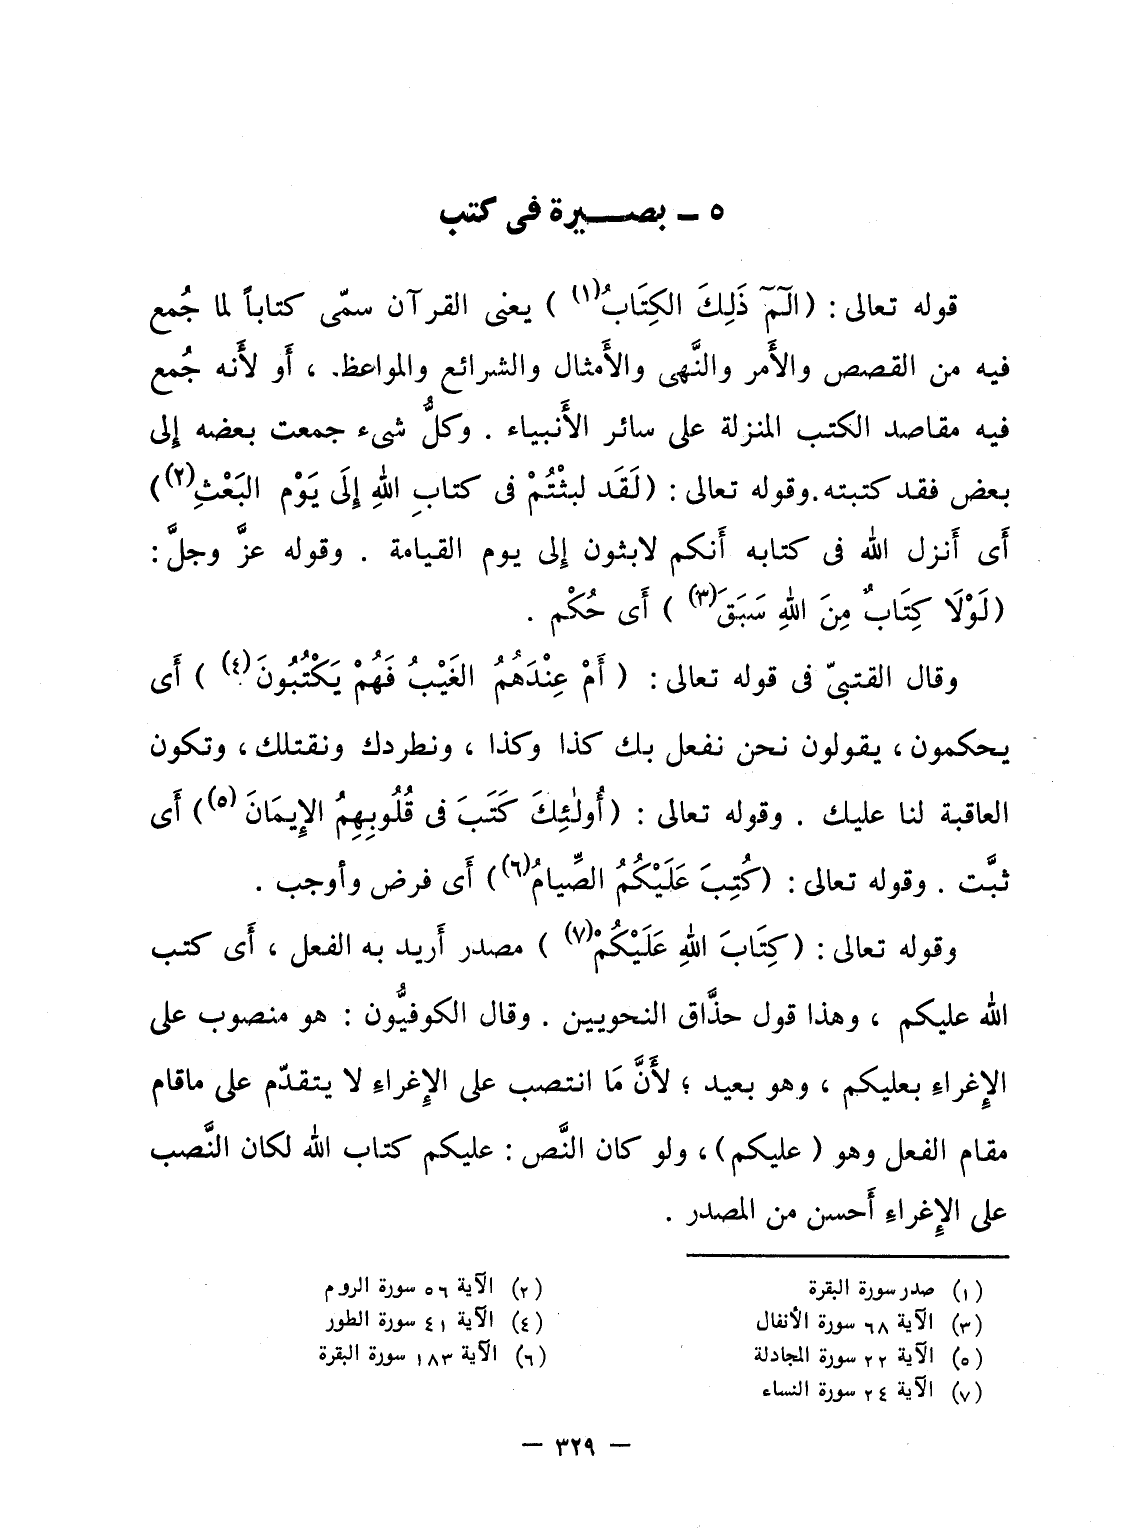 ٥ ــ بصـــيرة فى كتب
قوله تعالى : ( الٓمٓ ذَلِكَ الكِتَابُ(١) ) يعنى القرآن سمّى كتاباً لما جُمع
فيه من القصص والأَمر والنَّهى والأَمثال والشرائع والمواعظ. ، أَو لأَنه جُمع
فيه مقاصد الكتب المنزلة على سائر الأَنبياء . وكلُّ شىء جمعت بعضه إلى
بعض فقد كتبته.وقوله تعالى : (لَقَد لبثْتُمْ فى كتابِ اللهِ إلَى يَوْم البَعْثِ(٢))
أَى أَنزل الله فى كتابه أَنكم لابثون إلى يوم القيامة . وقوله عزَّ وجلَّ :
(لَوْلَا كِتَابٌ مِنَ اللهِ سَبَقَ(٣) ) أَى حُكْم .
وقال القتبىّ فى قوله تعالى : ( أَمْ عِنْدَهُمُ الغَيْبُ فَهُمْ يَكْتُبُونَ(٤) ) أَى
يحكمون ، يقولون نحن نفعل بك كذا وكذا ، ونطردك ونقتلك ، وتكون
العاقبة لنا عليك . وقوله تعالى : (أُولٰئِكَ كَتَبَ فى قُلُوبِهِمُ الإِيمَانَ (٥)) أَى
ثبَّت . وقوله تعالى : (كُتِبَ عَلَيْكُمُ الصِّيامُ(٦)) أَى فرض وأوجب .
وقوله تعالى : (كِتَابَ اللهِ عَلَيْكُمْ(٧) ) مصدر أَريد به الفعل ، أَى كتب
الله عليكم ، وهذا قول حذَّاق النحويين . وقال الكوفيُّون : هو منصوب على
الإِغراءِ بعليكم ، وهو بعيد ؛ لأَنَّ مَا انتصب على الإِغراءِ لا يتقدّم على ماقام
مقام الفعل وهو ( عليكم) ، ولو كان النَّص : عليكم كتاب الله لكان النَّصب
على الإِغراءِ أَحسن من المصدر .
(١) صدر سورة البقرة
(٢) الآية ٥٦ سورة الروم
(٣) الآية ٦٨ سورة الأنفال
(٤) الآية ٤١ سورة الطور
(٥) الآية ٢٢ سورة المجادلة
(٦) الآية ١٨٣ سورة البقرة
(٧) الآية ٢٤ سورة النساء
— ٣٢٩ —